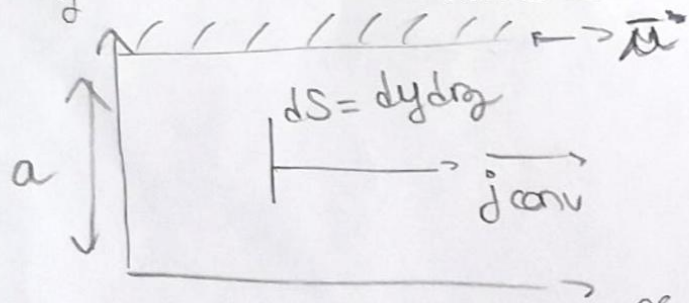 dS = dydz
a
j conv